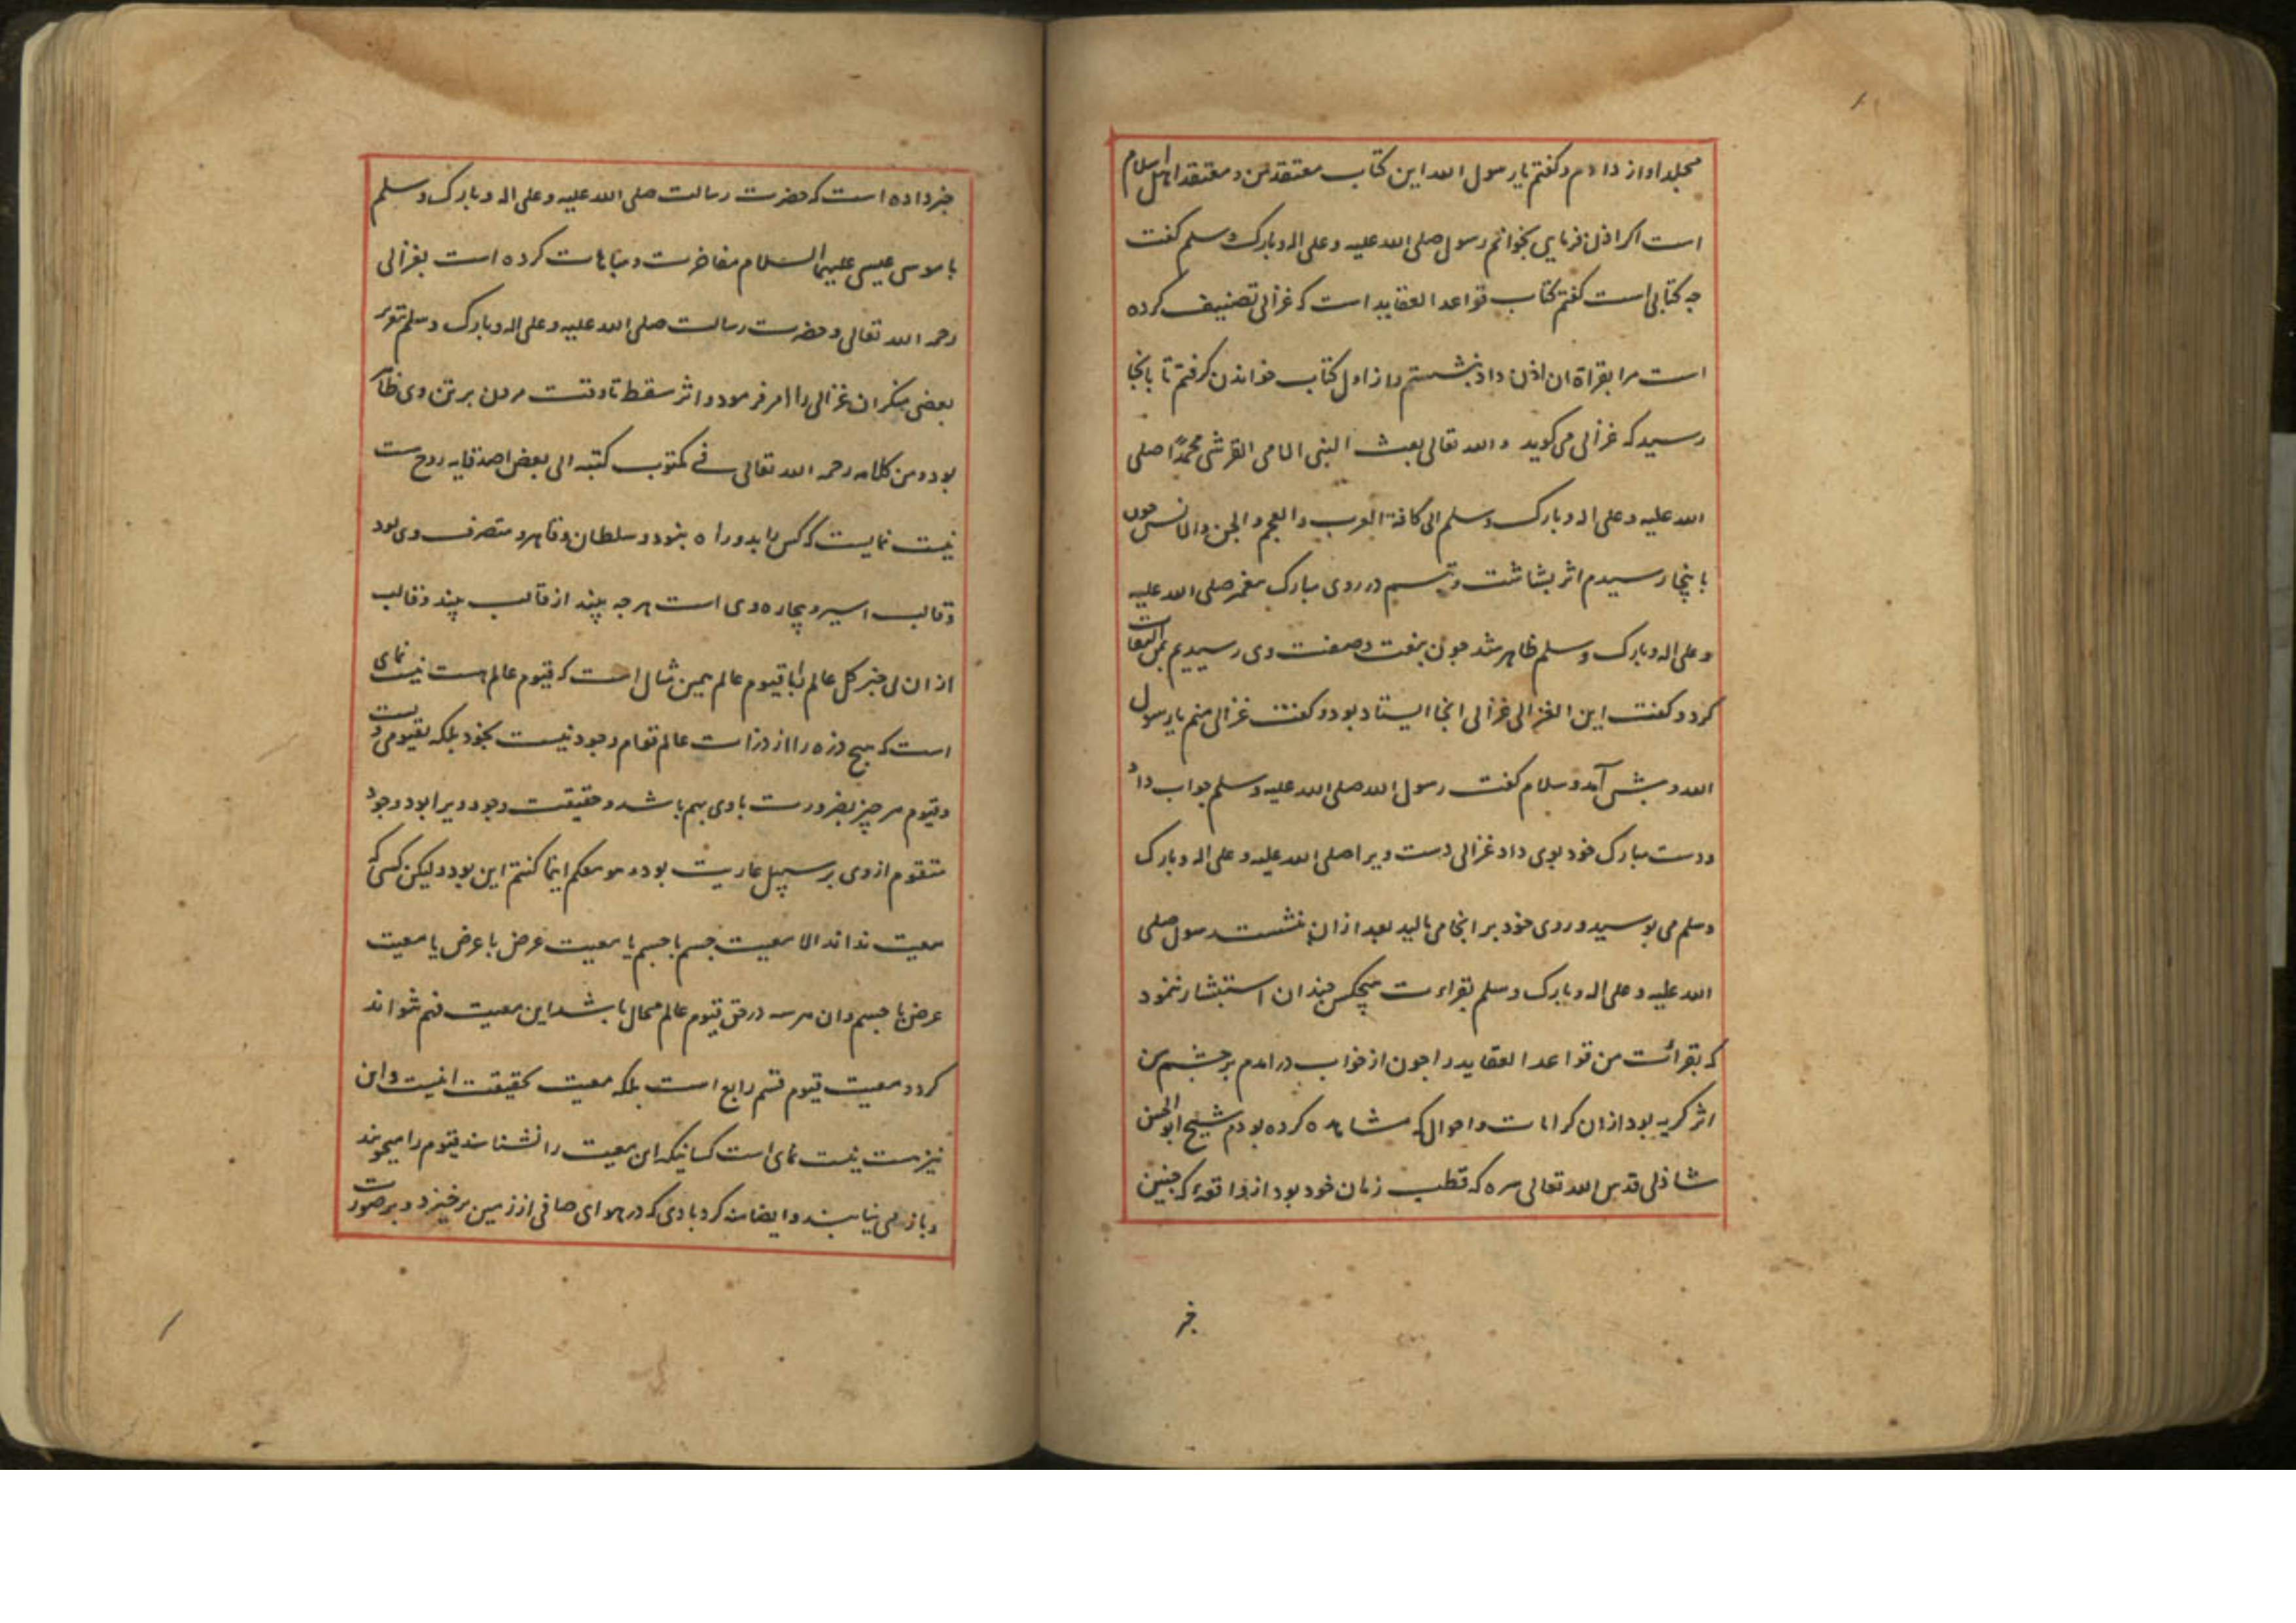 مجلد اواز دادم و کفتم یا رسول الله این کتاب معتقد من و معتقد اهل اسلام
است اکر اذن فرمایی بخوانم رسول صلی الله علیه و علی اله و بارک وسلم کفت
جه کتابی است کفتم کتاب قواعد العقاید است که غزالی تصنیف کرده
است مرا بقراة ان اذن داد بنشستم و از اول کتاب خواندن کرفتم تا بانجا
رسید که غزالی می کوید و الله تعالی بعث النبی الامی القرشی محمدًا صلی
الله علیه و علی اله و بارک وسلم الی کافة العرب والعجم و الجن والانس جون
باینجا رسیدم اثر بشاشت و تبسم در روی مبارک پیغمبر صلی الله علیه
و علی اله و بارک وسلم ظاهر شد جون بنعت و صفت وی رسیدیم بمن التفات
کرد و کفت این الغزالی غزالی انجا ایستاد بود و کفت غزالی منم یا رسول
الله و پیش آمد و سلام کفت رسول الله صلی الله علیه وسلم جواب داد
و دست مبارک خود بوی داد غزالی دست ویرا صلی الله علیه و علی اله و بارک
وسلم می بوسید و روی خود بر انجا می مالید بعد از ان بنشست رسول صلی
الله علیه و علی اله و بارک وسلم بقراءت هیچکس چندان استبشار ننمود
که بقرائت من قواعد العقاید را جون از خواب درامدم بر چشم من
اثر کریه بود از ان کرامات و احوال که مشاهده کرده بودم شیخ ابو الحسن
شاذلی قدس الله تعالی سره که قطب زمان خود بود از واقعهٔ که جنین
خبر
خبر داده است که حضرت رسالت صلی الله علیه و علی اله و بارک وسلم
با موسی عیسی علیهما السلام مفاخرت و مباهات کرده است بغزالی
رحمه الله تعالی و حضرت رسالت صلی الله علیه و علی اله و بارک وسلم بتعزیر
بعضی منکران غزالی را امر فرمود و اثر سقط تا وقت مردن بر تن وی ظاهر
بود و من کلامه رحمه الله تعالی فی مکتوب کتبه الی بعض اصدقایه روح هست
نیست نمایست که کس را بدو راه بنود و سلطان و قاهر و متصرف وی بود
و قالب اسیر و بیچاره وی است هر جه بیند از قالب بیند و قالب
از ان بی خبر کل عالم را با قیوم عالم همین مثال است که قیوم عالم هست نیست نمای
است که هیج ذره را از ذرات عالم قوام وجود نیست بخود بلکه بقیومی ویست
و قیوم هر چیز بضرورت با وی بهم باشد و حقیقت وجود ویرا بود و وجود
متقوم از وی بر سبیل عاریت بود و هو معکم اینما کنتم این بود و لیکن کسی که
معیت نداند الا معیت جسم با جسم یا معیت عرض با عرض یا معیت
عرض با جسم و ان هر سه در حق قیوم عالم محال باشد این معیت فهم نتواند
کرد و معیت قیوم قسم رابع است بلکه معیت بحقیقت اینست و این
نیز هست نیست نمای است کسانیکه این معیت را نشناسند قیوم را میجویند
و باز می نیابند و ایضا منه کردبادی که در هوای صافی از زمین برخیزد و بر صورت